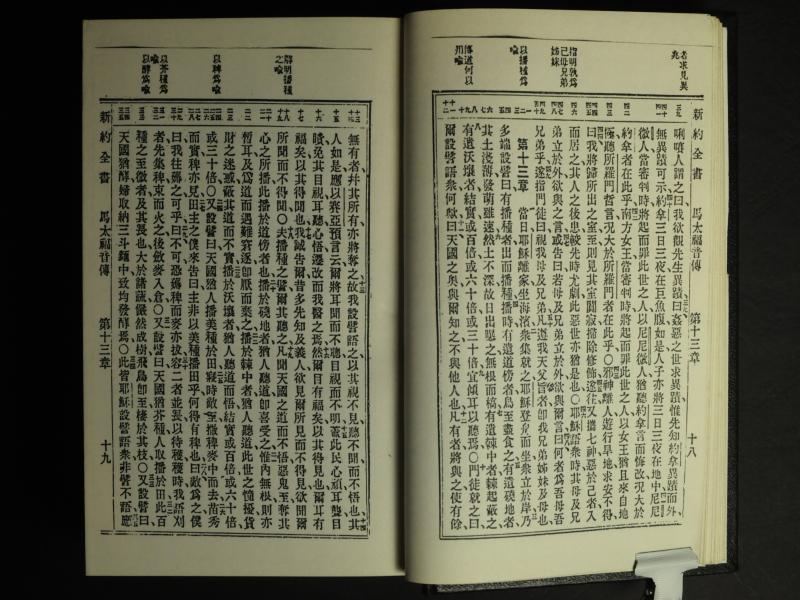 新約全書 馬太福音傳 第十三章 十八
者求見異兆
指明孰爲己母兄弟姊妹
以播種爲喩
傳道何以用喩
唎嗹人謂之曰我欲觀先生異蹟曰姦惡之世求異蹟惟先知約拿異蹟而外
無異蹟可示約拿三日三夜在巨魚腹如是人子亦將三日三夜在地中尼尼
微人當審判時將起而罪此世之人以尼尼微人猶聽約拿言而悔改況大於
約拿者在此乎南方女王當審判時將起而罪此世之人以女王猶且來自地
極聽所羅門哲言況大於所羅門者在此乎〇邪神離人遊行旱地求安不得
曰我將歸所出之室至則見其室閒寂掃除修飾遂往又攜七神惡於己者入
而居之其人之後患較先時尤劇此惡世亦猶是也〇耶穌語衆時其母及兄
弟立於外欲與之言或告曰若母及兄弟立於外欲與爾言曰何者爲吾母吾
兄弟乎遂指門徒曰視我母及兄弟凡遵我天父旨者卽我兄弟姊妹及母也
第十三章 當日耶穌離家坐海濱衆集就之耶穌登舟而坐衆立於岸乃
多端設譬曰有播種者出而播種播時有遺道傍者鳥至盡食之有遺磽地者
其土淺薄發萌雖速然土不深故日出曝之無根而槁有遺棘中者棘起蔽之
有遺沃壤者結實或百倍或六十倍或三十倍宜傾耳以聽焉〇門徒就之曰
爾設譬語衆何歟曰天國之奧與爾知之不與他人也凡有者將與之使有餘
解明播種之喩
以稗爲喩
以芥種爲喩
以酵爲喩
無有者并其所有亦將奪之故我設譬語之以其視而不見聽而不聞而不悟也其
人如是應以賽亞預言云爾將耳聞而不聰目視而不明蓋此民心頑耳聾目
瞶免其目視耳聽心悟遷改而我醫之焉然爾目有福矣以其得見也爾耳有
福矣以其得聞也我誠告爾昔多先知及義人欲見爾所見而不得見欲聞爾
所聞而不得聞〇夫播種之譬爾其聽之凡聞天國之道而不悟惡鬼至奪其
心之所播此播於道傍者也播於磽地者猶人聽道卽喜受之惟內無根則亦
暫耳及爲道而遇難窘遂卽厭而棄之播於棘中者猶人聽道此世之憧擾貨
財之迷惑蔽其道而不實播於沃壤者猶人聽道而悟結實或百倍或六十倍
或三十倍〇又設譬曰天國猶人播美種於田寢時敵至播稗麥中而去苗秀
而實稗亦見田主之僕來告曰主非以美種播田乎何得有稗也曰敵爲之僕
曰我往薅之可乎曰不可恐薅稗而麥亦拔容二者並長以待穫穫時我語刈
者先集稗束而火之後斂麥入倉〇又設譬曰天國猶芥種人取播於田此百
種之至微者及其長也大於諸蔬儼然成樹飛鳥卽至棲於其枝〇又設譬曰
天國猶酵婦取納三斗麵中致均發酵焉〇此皆耶穌設譬語衆非譬不語應
新約全書 馬太福音傳 第十三章 十九